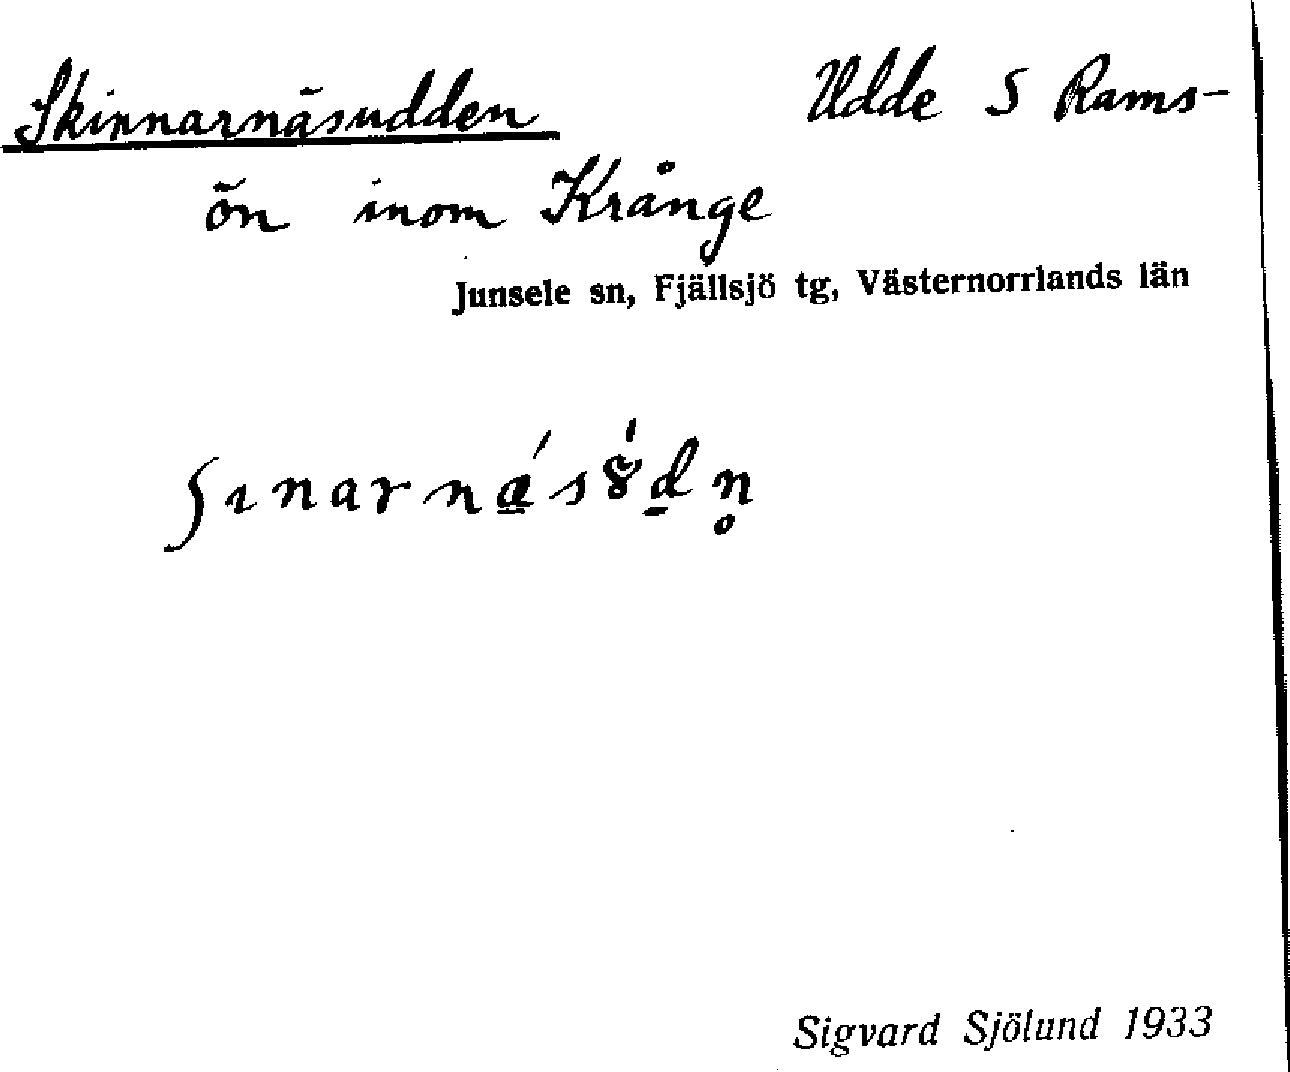 Skinnarnäsudden Udde S Rams-
ön inom Krånge
Junsele sn, Fjällsjö tg, Västernorrlands län
Sigvard Sjölund 1933